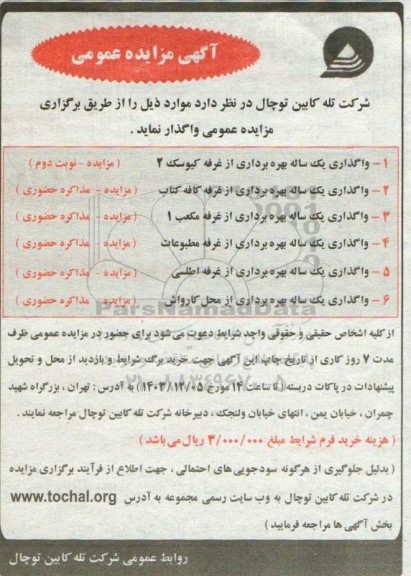 آگهی مزایده عمومی
شرکت تله کابین توچال در نظر دارد موارد ذیل را از طریق برگزاری
مزایده عمومی واگذار نماید .
۱ - واگذاری یک ساله بهره برداری از غرفه کیوسک ۲ ( مزایده - نوبت دوم )
۲ - واگذاری یک ساله بهره برداری از غرفه کافه کتاب ( مزایده - مذاکره حضوری )
۳ - واگذاری یک ساله بهره برداری از غرفه مکعب ۱ ( مزایده - مذاکره حضوری )
۴ - واگذاری یک ساله بهره برداری از غرفه مطبوعات ( مزایده - مذاکره حضوری )
۵ - واگذاری یک ساله بهره برداری از غرفه اطلسی ( مزایده - مذاکره حضوری )
۶ - واگذاری یک ساله بهره برداری از محل کارواش ( مزایده - مذاکره حضوری )
ParsNamadData
از کلیه اشخاص حقیقی و حقوقی واجد شرایط دعوت می شود برای حضور در مزایده عمومی ظرف
مدت ۷ روز کاری از تاریخ چاپ این آگهی جهت خرید برگه شرایط و بازدید از محل و تحویل
پیشنهادات در پاکات دربسته ( تا ساعت ۱۴ مورخ ۱۴۰۳/۱۲/۰۵) به آدرس : تهران ، بزرگراه شهید
چمران ، خیابان یمن ، انتهای خیابان ولنجک ، دبیرخانه شرکت تله کابین توچال مراجعه نمایند .
( هزینه خرید فرم شرایط مبلغ ۳/۰۰۰/۰۰۰ ریال می باشد )
( بدلیل جلوگیری از هرگونه سودجویی های احتمالی ، جهت اطلاع از فرآیند برگزاری مزایده
در شرکت تله کابین توچال به وب سایت رسمی مجموعه به آدرس www.tochal.org
بخش آگهی ها مراجعه فرمایید )
روابط عمومی شرکت تله کابین توچال